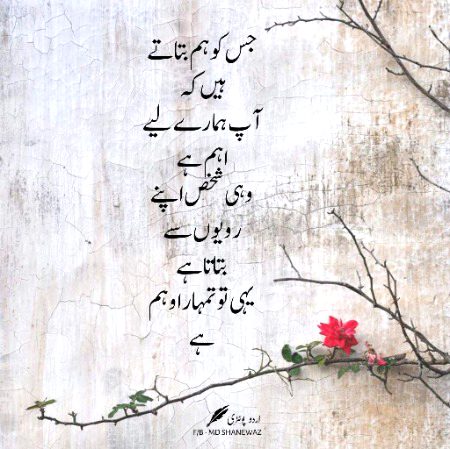 جس کو ہم بتاتے
ہیں کہ
آپ ہمارے لیے
اہم ہے
وہی شخص اپنے
رویوں سے
بتاتا ہے
یہی تو تمہارا وہم
ہے
اردو پوئٹری
F/B - MD SHANEWAZ